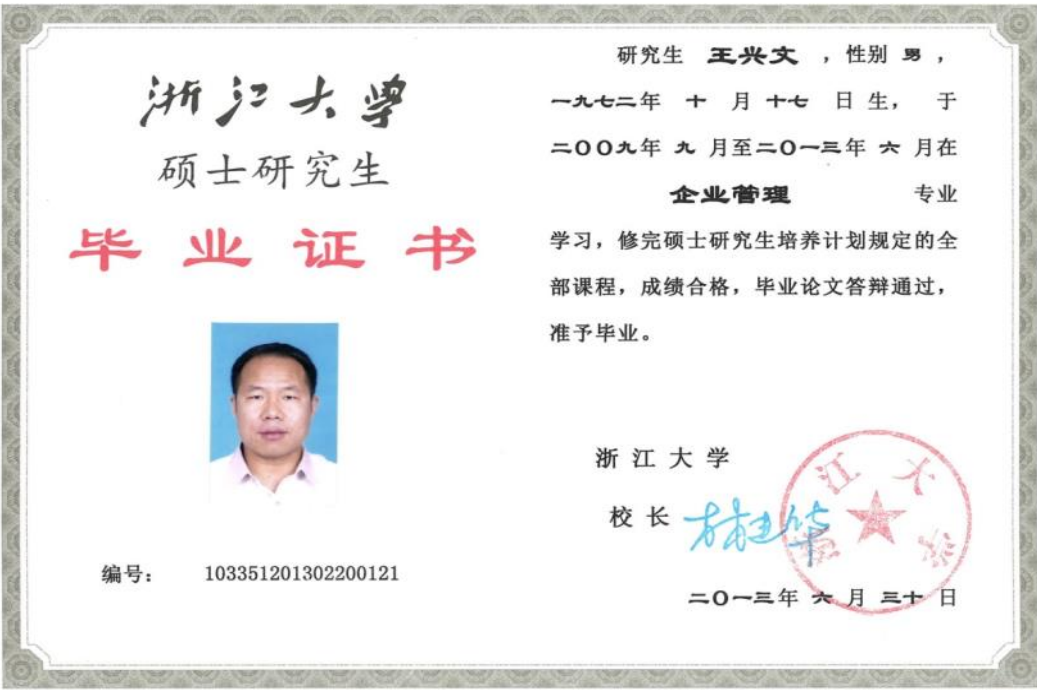 浙江大学
硕士研究生
毕业证书
编号: 103351201302200121
研究生 王兴文 ,性别 男,
一九七二年 十 月 十七 日生, 于
二○○九年 九 月至二○一三年 六 月在
企业管理 专业
学习,修完硕士研究生培养计划规定的全
部课程,成绩合格,毕业论文答辩通过,
准予毕业。
浙江大学
校长 林建华
浙江大学
二○一三年 六 月 三十 日